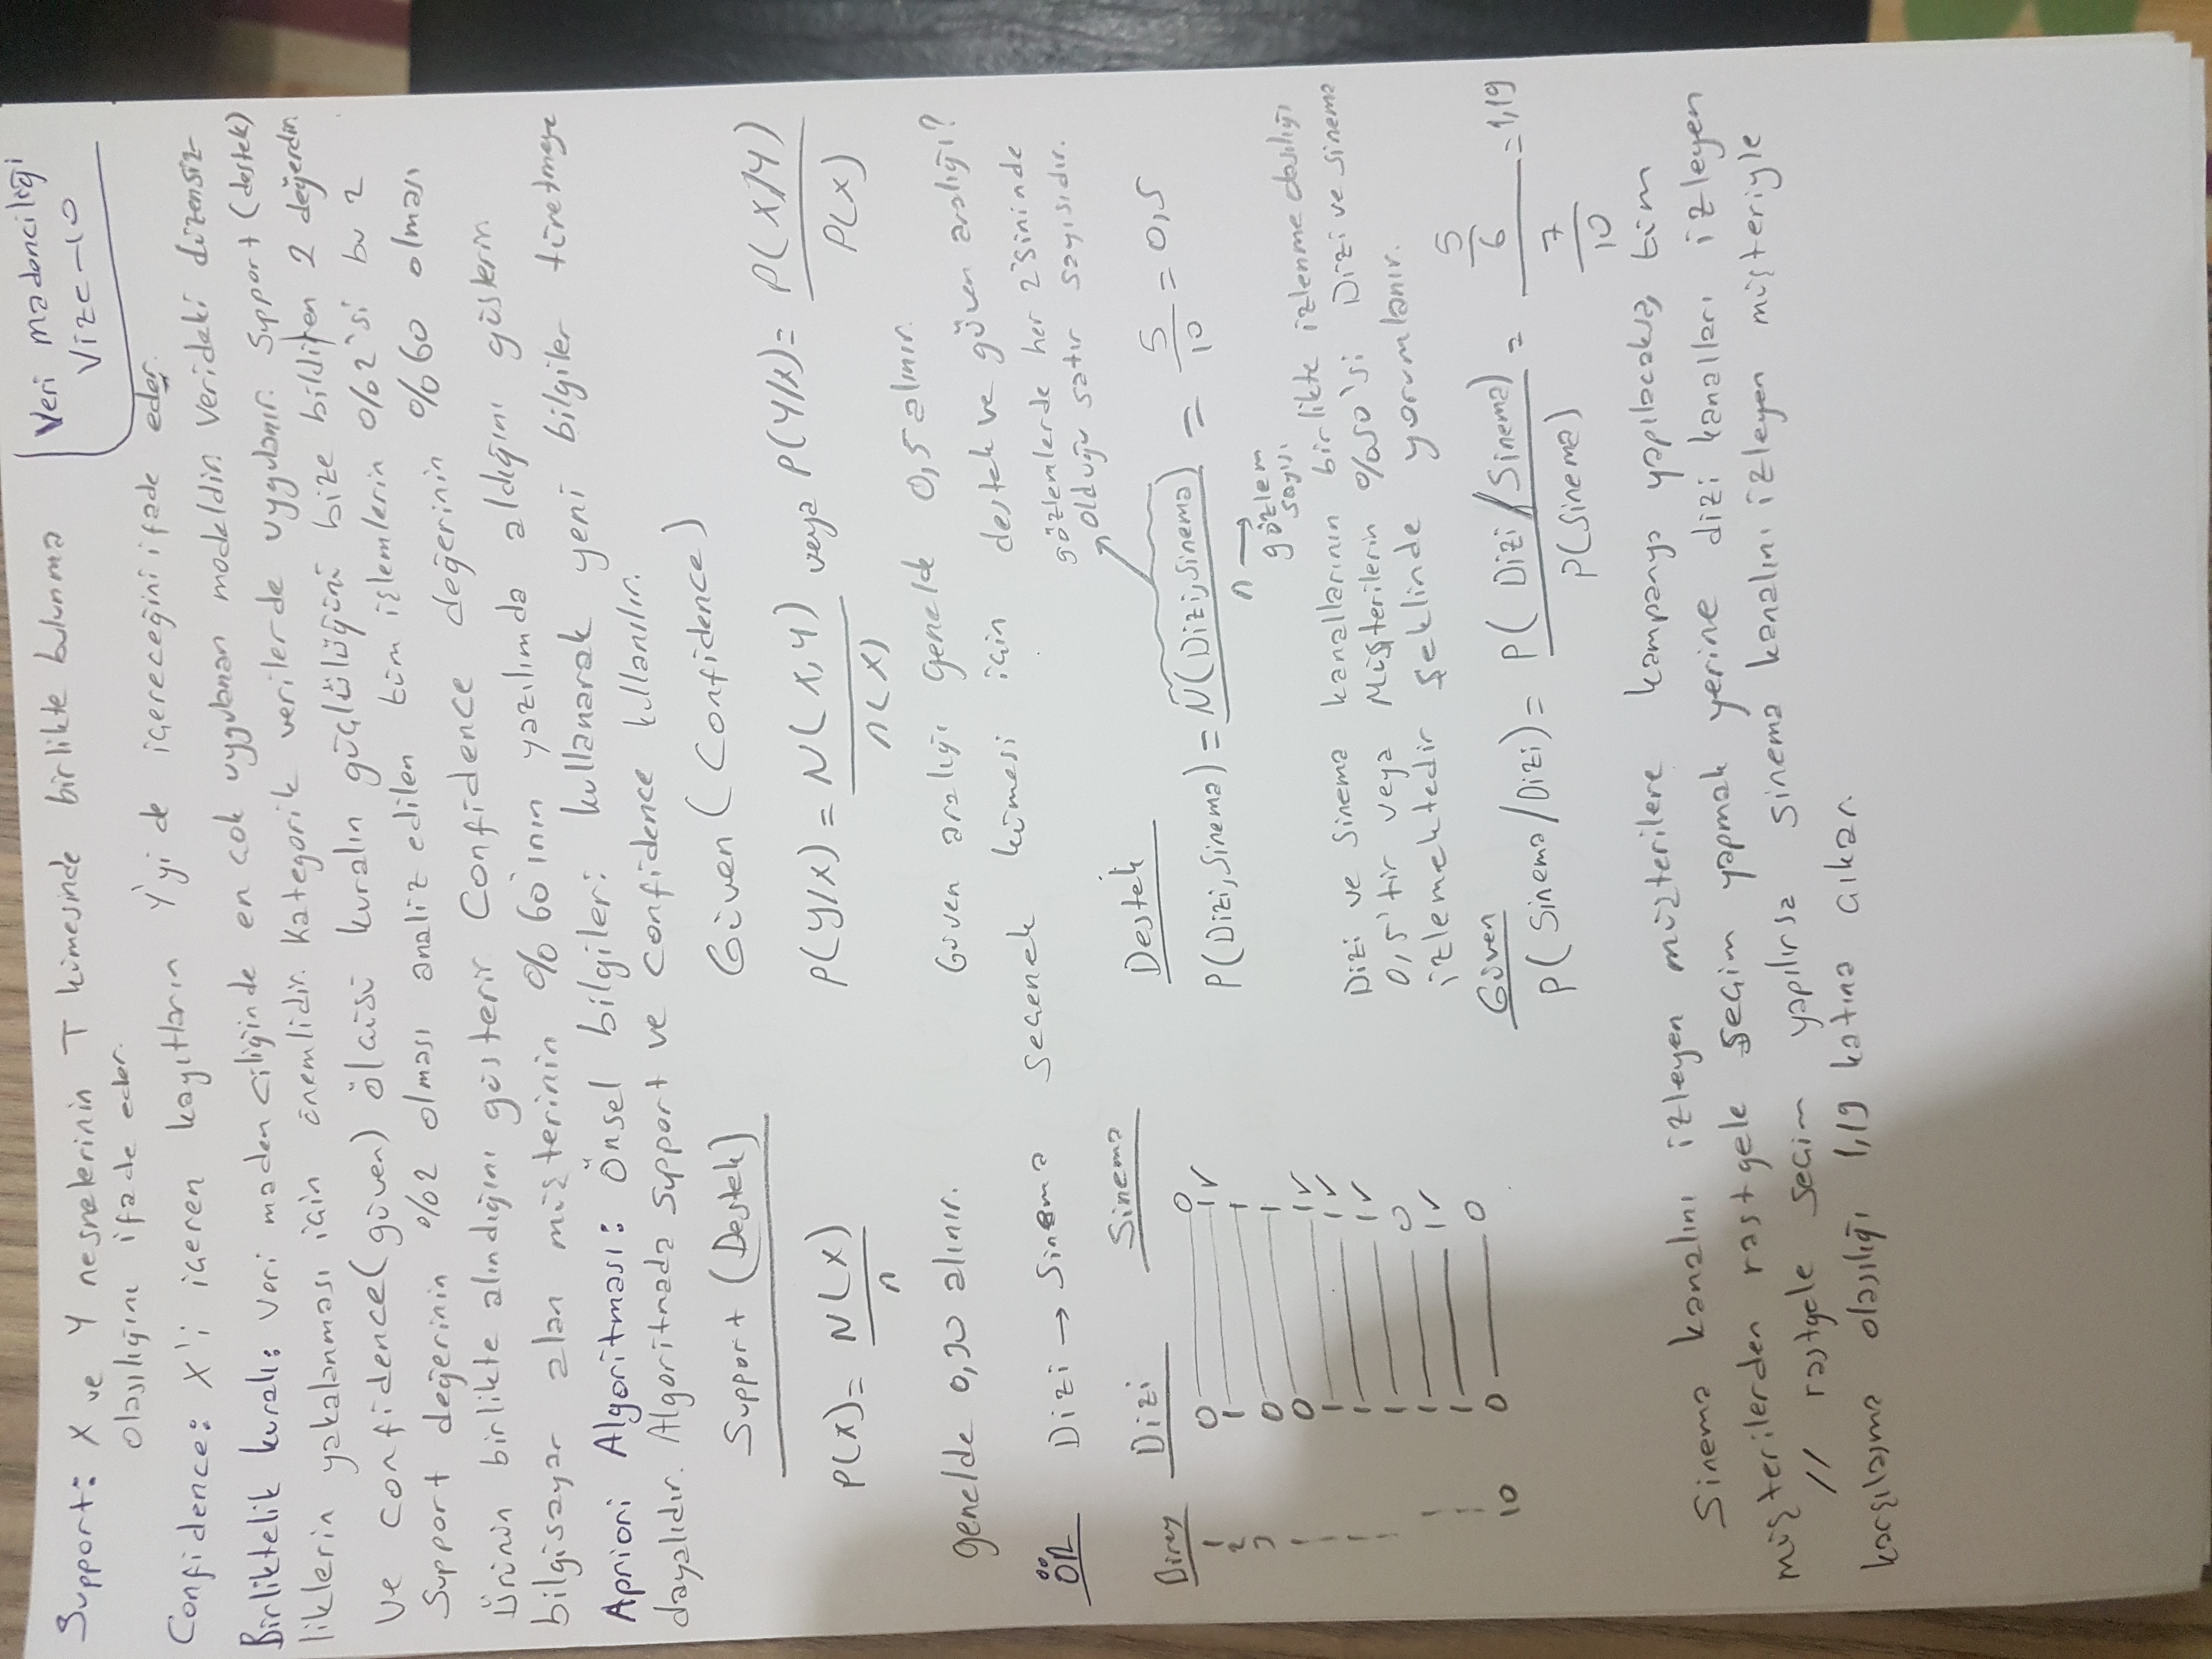 Veri madenciliği
Vize-10
Support: X ve Y nesnelerinin T kümesinde birlikte bulunma
olasılığını ifade eder.
Confidence: X'i içeren kayıtların Y'yi de içereceğini ifade eder.
Birliktelik kuralı: Veri madenciliğinde en çok uygulanan modeldir. Verideki düzensiz-
liklerin yakalanması için önemlidir. Kategorik verilerde uygulanır. Support (destek)
ve confidence (güven) ölçüsü kuralın güçlülüğünü bize bildiren 2 değerdir.
Support değerinin %2 olması analiz edilen tüm işlemlerin %2'si bu 2
ürünün birlikte alındığını gösterir Confidence değerinin %60 olması
bilgisayar alan müşterinin %60'ının yazılımda aldığını gösterir.
Apriori Algoritması: Önsel bilgileri kullanarak yeni bilgiler türetmeye
dayalıdır. Algoritmada Support ve Confidence kullanılır.
Support (Destek) Güven (Confidence)
P(X) = N(X) / n P(Y/X) = N(X,Y) / n(X) veya P(Y/X) = P(X/Y) / P(X)
genelde 0,30 alınır. Güven aralığı genelde 0,5 alınır.
ÖR Dizi → Sinema seçenek kümesi için destek ve güven aralığı?
gözlemlerde her 2'sininde
olduğu satır sayısıdır.
Birey Dizi Sinema Destek
1 0 0
2 1 1 ✓
3 0 1
0 1
1 1 ✓
1 1 ✓
1 1 ✓
1 0
1 1 ✓
10 0 0
P(Dizi, Sinema) = N(Dizi, Sinema) / n = 5/10 = 0,5
n → gözlem
sayısı
Dizi ve Sinema kanallarının birlikte izlenme olasılığı
0,5'tir veya Müşterilerin %50'si Dizi ve sinema
izlemektedir şeklinde yorumlanır.
Güven
P(Sinema/Dizi) = P(Dizi/Sinema) / P(Sinema) = 5/6 / 7/10 = 1,19
Sinema kanalını izleyen müşterilere kampanya yapılacaksa, tüm
müşterilerden rastgele seçim yapmak yerine dizi kanalları izleyen
// rastgele seçim yapılırsa sinema kanalını izleyen müşteriyle
karşılaşma olasılığı 1,19 katına çıkar.